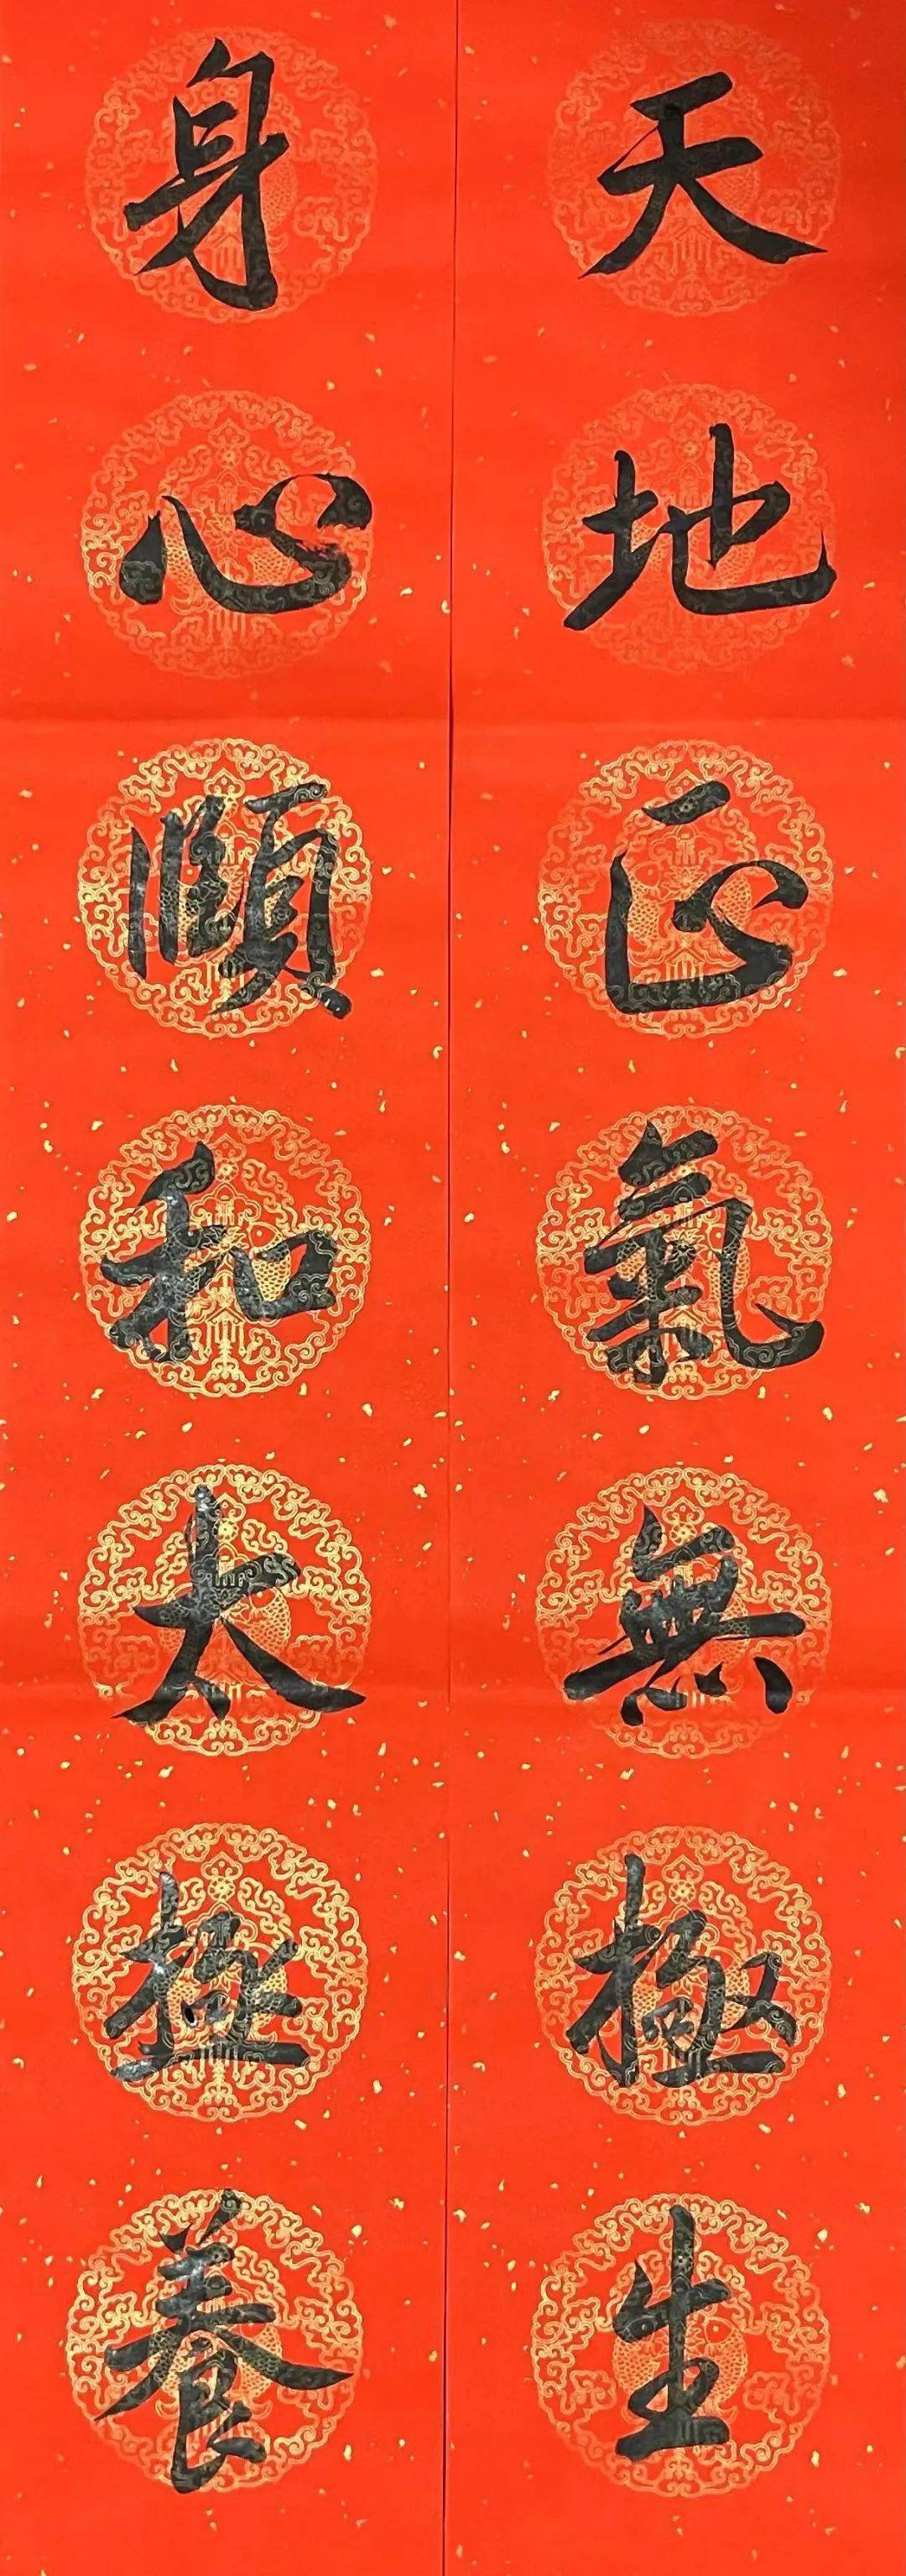 天地正氣無極生
身心頤和太極養